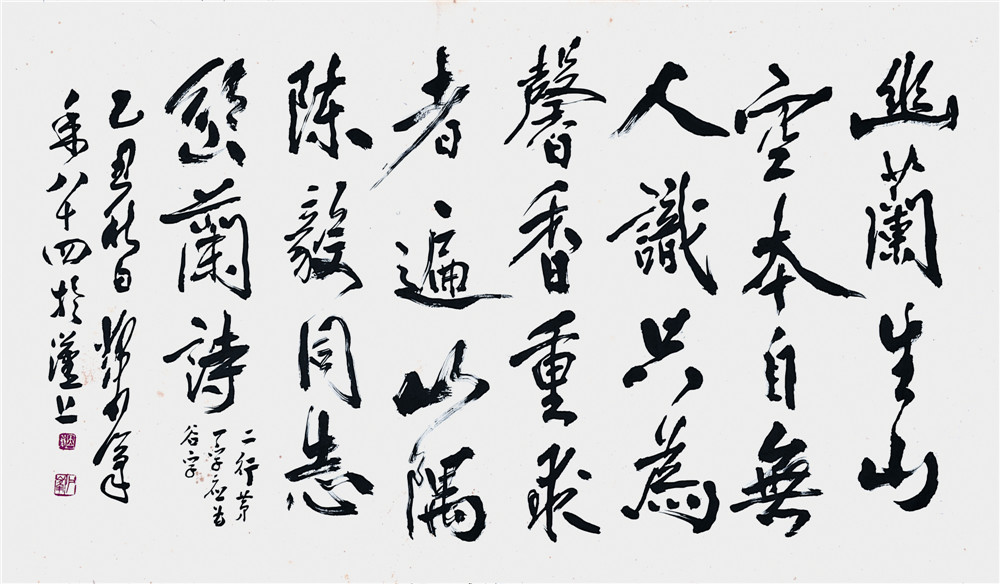 幽蘭生山
空本自無
人識只為
馨香重求
者遍山隅
陳毅同志
幽蘭詩
二行第
一字應為
谷字
乙丑秋日
年八十四於漢上